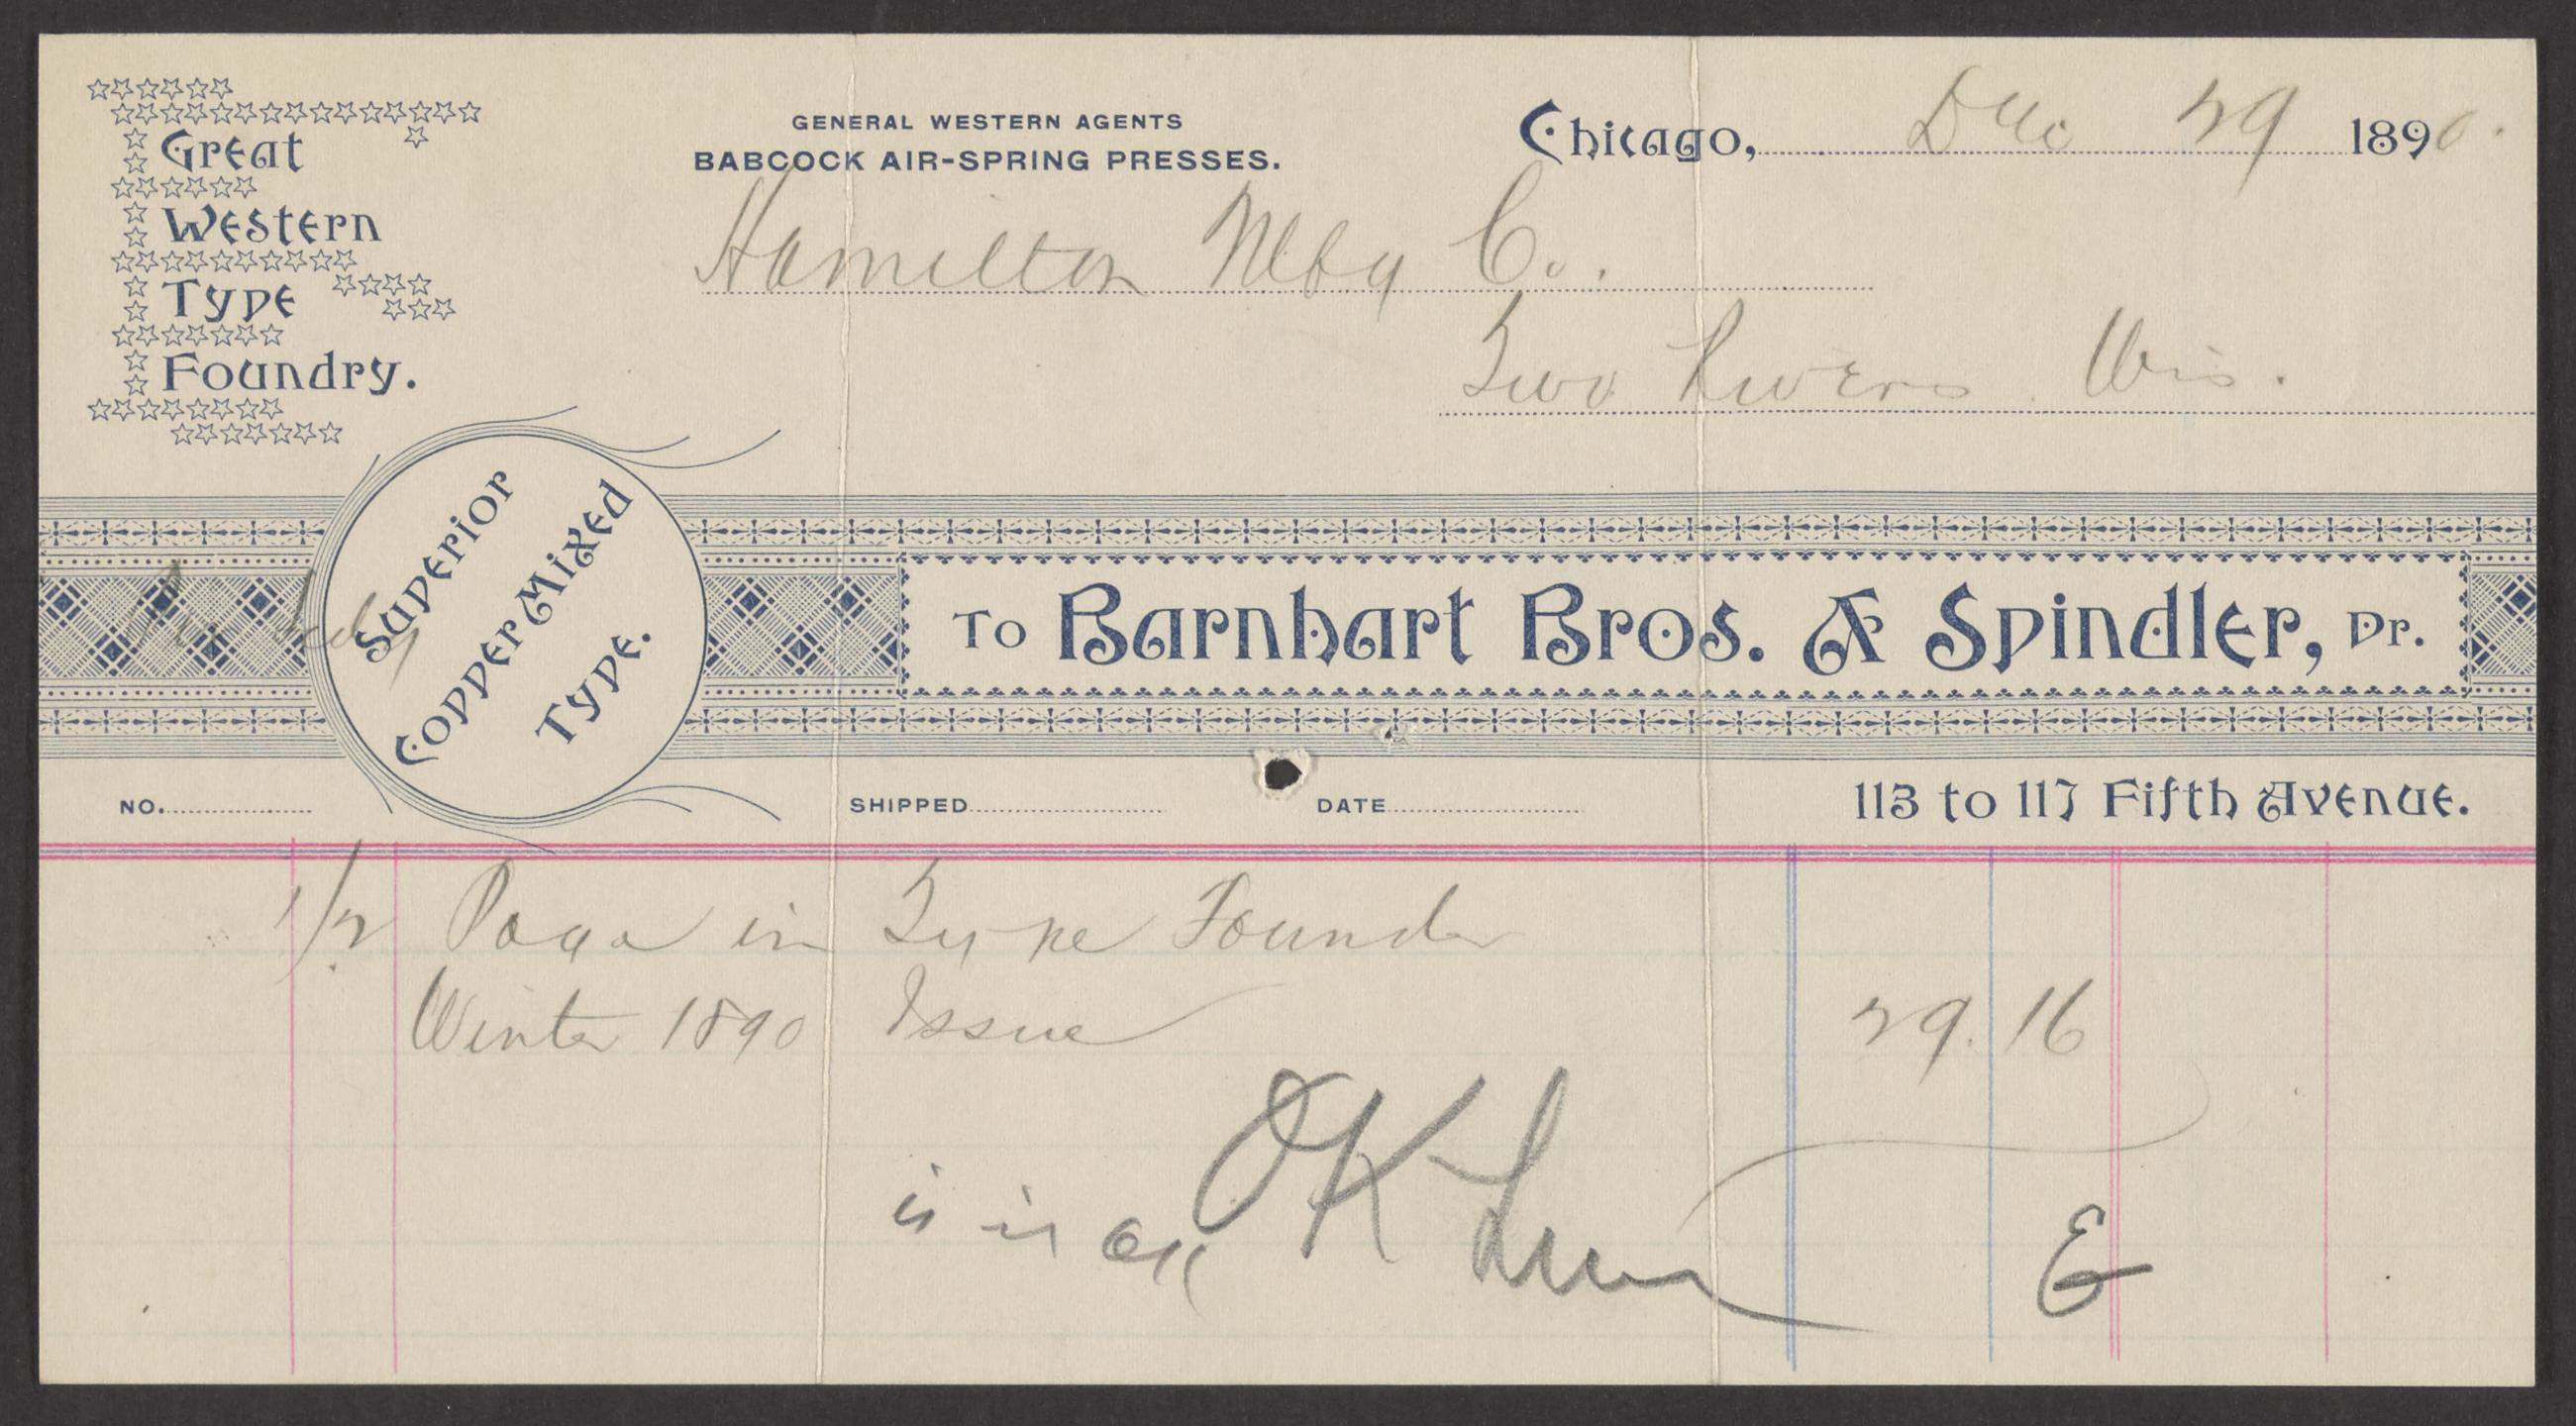 Great
Western
Type
Foundry.
GENERAL WESTERN AGENTS
BABCOCK AIR-SPRING PRESSES.
Chicago, Dec 29 1890.
Hamilton Mfg Co.
Two Rivers Wis.
Superior
Copper Mixed
Type.
To Barnhart Bros. & Spindler, Dr.
NO. SHIPPED DATE 113 to 117 Fifth Avenue.
1/2 Page in Type Founder
Winter 1890 Issue 29.16
OK
is in
E